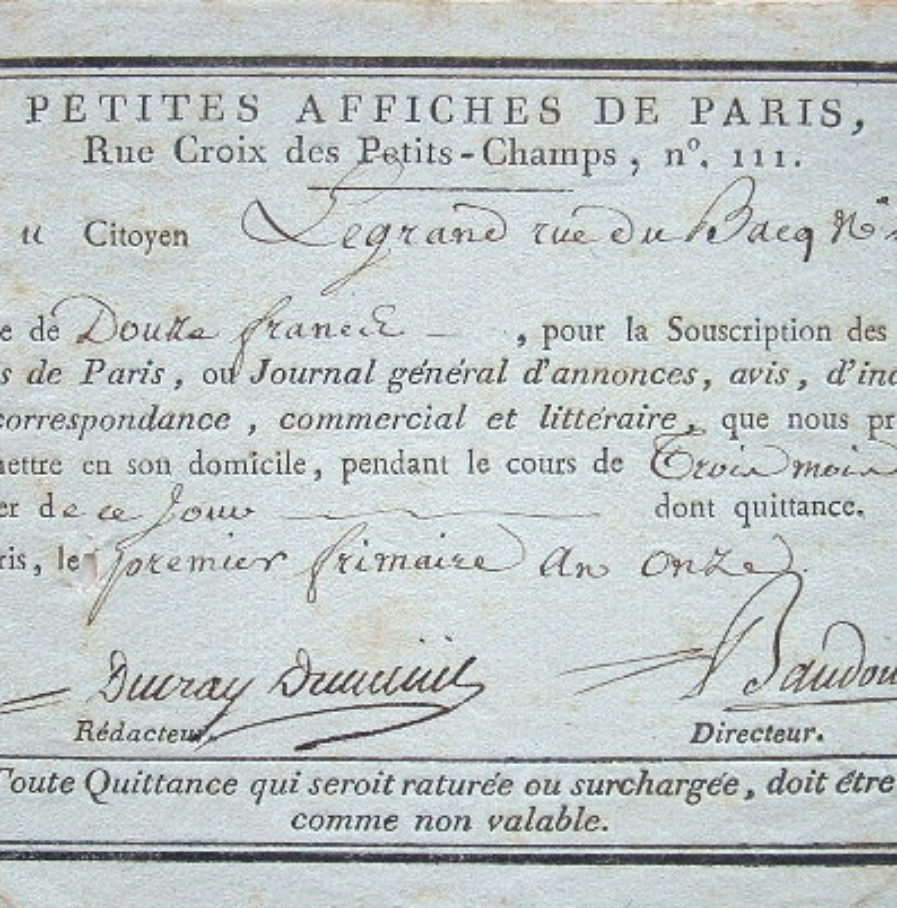 PETITES AFFICHES DE PARIS,
Rue Croix des Petits-Champs, nº. 111.
u Citoyen Legrand rue du Bacq Nº
e de Douze francs — , pour la Souscription des
s de Paris, ou Journal général d'annonces, avis, d'ind
correspondance, commercial et littéraire, que nous pr
ettre en son domicile, pendant le cours de Trois mois
er de ce Jour dont quittance.
ris, le premier frimaire an onze.
Ducray Duminil Baudou
Rédacteur. Directeur.
Toute Quittance qui seroit raturée ou surchargée, doit être
comme non valable.